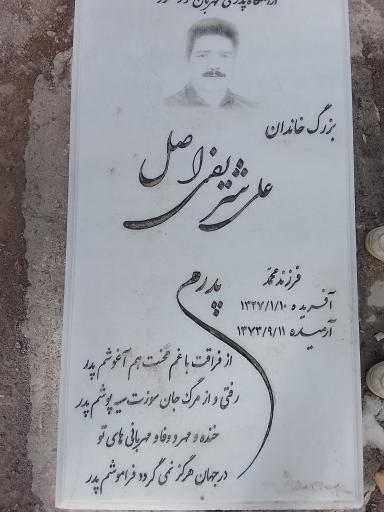 آرامگاه پدری مهربان و دلسوز
بزرگ خاندان
علی شریفی اصل
فرزند محمد
پدرم
آفریده ۱۳۲۷/۱/۱۰
آرمیده ۱۳۷۳/۹/۱۱
از فراقت با غم و محنت هم آغوشم پدر
رفتی و از مرگ جان سوزت سیه پوشم پدر
خنده و مهر و وفا و مهربانی های تو
در جهان هرگز نمی گردد فراموشم پدر